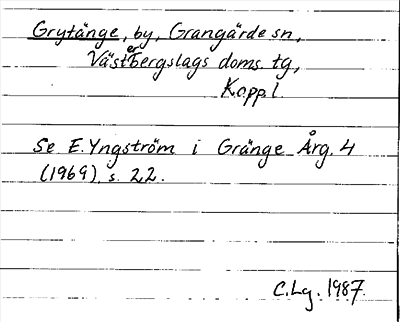 Grytänge, by, Grangärde sn,
Västerbergslags doms. tg,
Kopp. l.
Se E. Yngström i Gränge Årg. 4
(1969), s. 22.
C. Lg. 1987